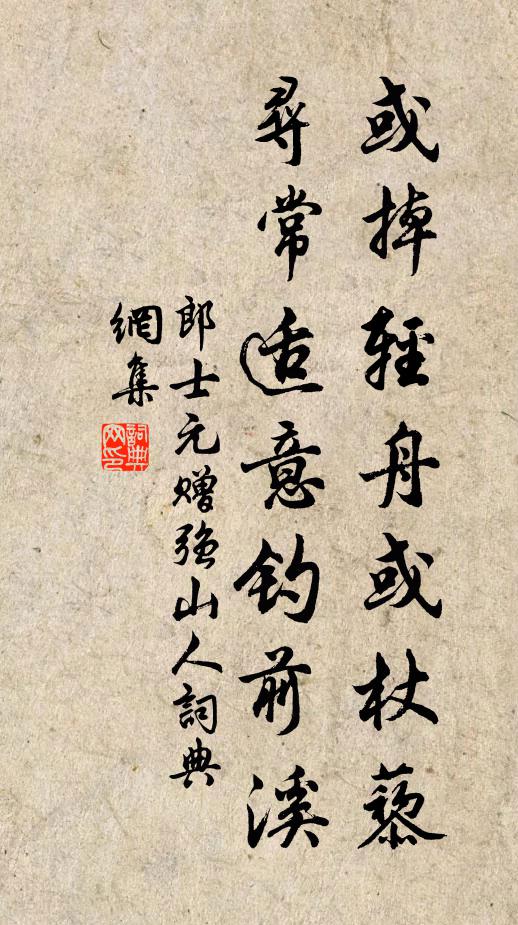 或掉輕舟或杖藜
尋常适意釣前溪
郎士元贈強山人詞典
網集
詞典
网印